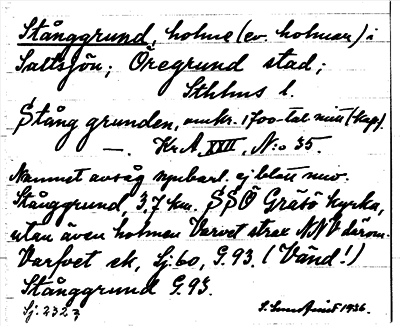 Stånggrund, holme (ev. holmar) i
Saltsjön; Öregrund stad;
Sthlms l.
Stång grunden, omkr. 1700-tal mitt (kop).
— . Kr. A. XXII, N:o 35.
Namnet avsåg synbarl. ej blott nuv.
Stånggrund, 3,7 km. SSÖ Gräsö kyrka,
utan även holmen Varvet strax NNV därom.
Varfvet ek, Sj. 60, G. 93. (Vänd!)
Stånggrund G. 93.
Sj. 232
1936.